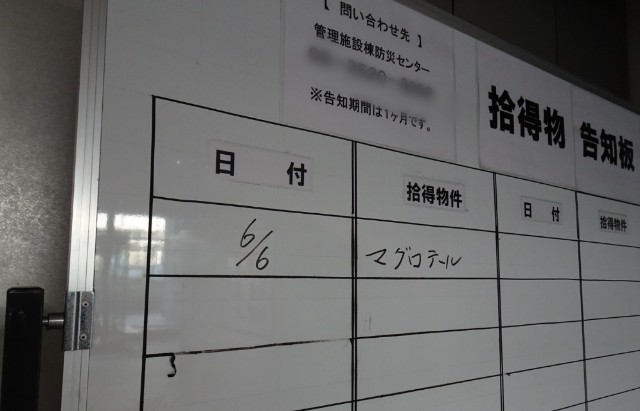 【 問い合わせ先 】
管理施設棟防災センター
※告知期間は1ヶ月です。
拾得物 告知板
日 付
拾得物件
日 付
拾得物件
6/6
マグロテール